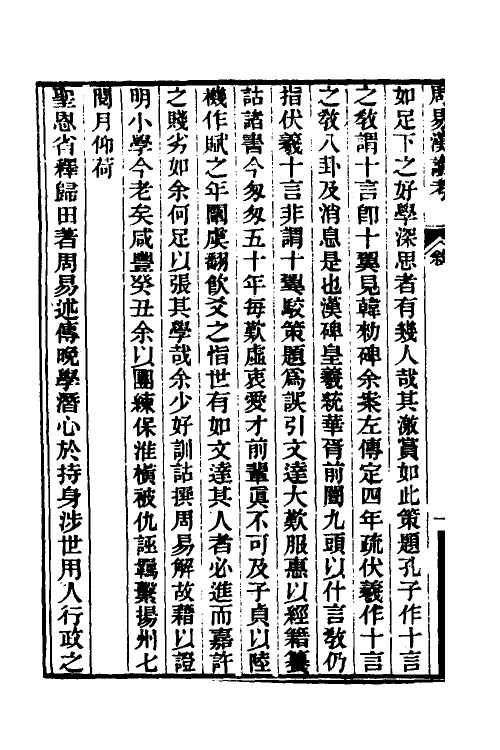 周易漢讀考
敘
一
如足下之好學深思者有幾人哉其激賞如此策題孔子作十言
之敎謂十言卽十翼見韓勑碑余案左傳定四年疏伏羲作十言
之敎八卦及消息是也漢碑皇羲統華胥前闓九頭以什言敎仍
指伏羲十言非謂十翼駮策題爲誤引文達大歎服惠以經籍籑
詁諸書今匆匆五十年每歎虛衷愛才前輩眞不可及子貞以陸
機作賦之年闡虞翻飮爻之恉世有如文達其人者必進而嘉許
之賤劣如余何足以張其學哉余少好訓詁撰周易解故藉以證
明小學今老矣咸豐癸丑余以團練保淮橫被仇誣羈繫揚州七
閱月仰荷
聖恩省釋歸田著周易述傳晚學潛心於持身涉世用人行政之